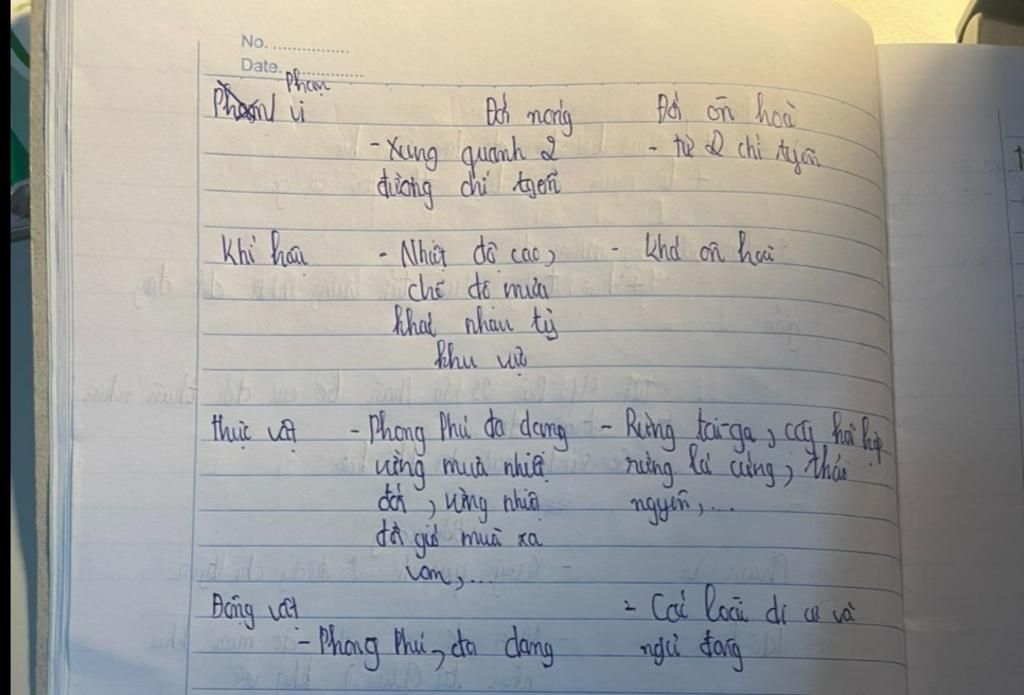 No. ................
Date. ................
Phạm
vi Đới nóng Đới ôn hoà
- Xung quanh 2 - từ 2 chí tuyến
đường chí tuyến
Khí hậu - Nhiệt độ cao, - khá ôn hoà
chế độ mưa
khác nhau tuỳ
khu vực
thực vật - Phong Phú đa dạng - Rừng tai-ga, cây hỗn hợp
rừng mưa nhiệt rừng lá cứng, thảo
đới, rừng nhiệt nguyên,...
đới gió mùa xa
van,...
Động vật - Các loài di cư và
- Phong Phú, đa dạng ngủ đông